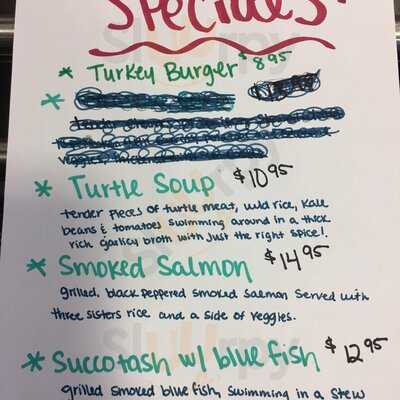 Specials!
* Turkey Burger $8.95
*
* Turtle Soup $10.95
tender pieces of turtle meat, wild rice, kale
beans & tomatoes swimming around in a thick
rich garlicy broth with just the right spice!
* Smoked Salmon $14.95
grilled, black peppered smoked salmon served with
three sisters rice and a side of veggies.
* Succotash w/ blue fish $12.95
grilled smoked blue fish, swimming in a stew